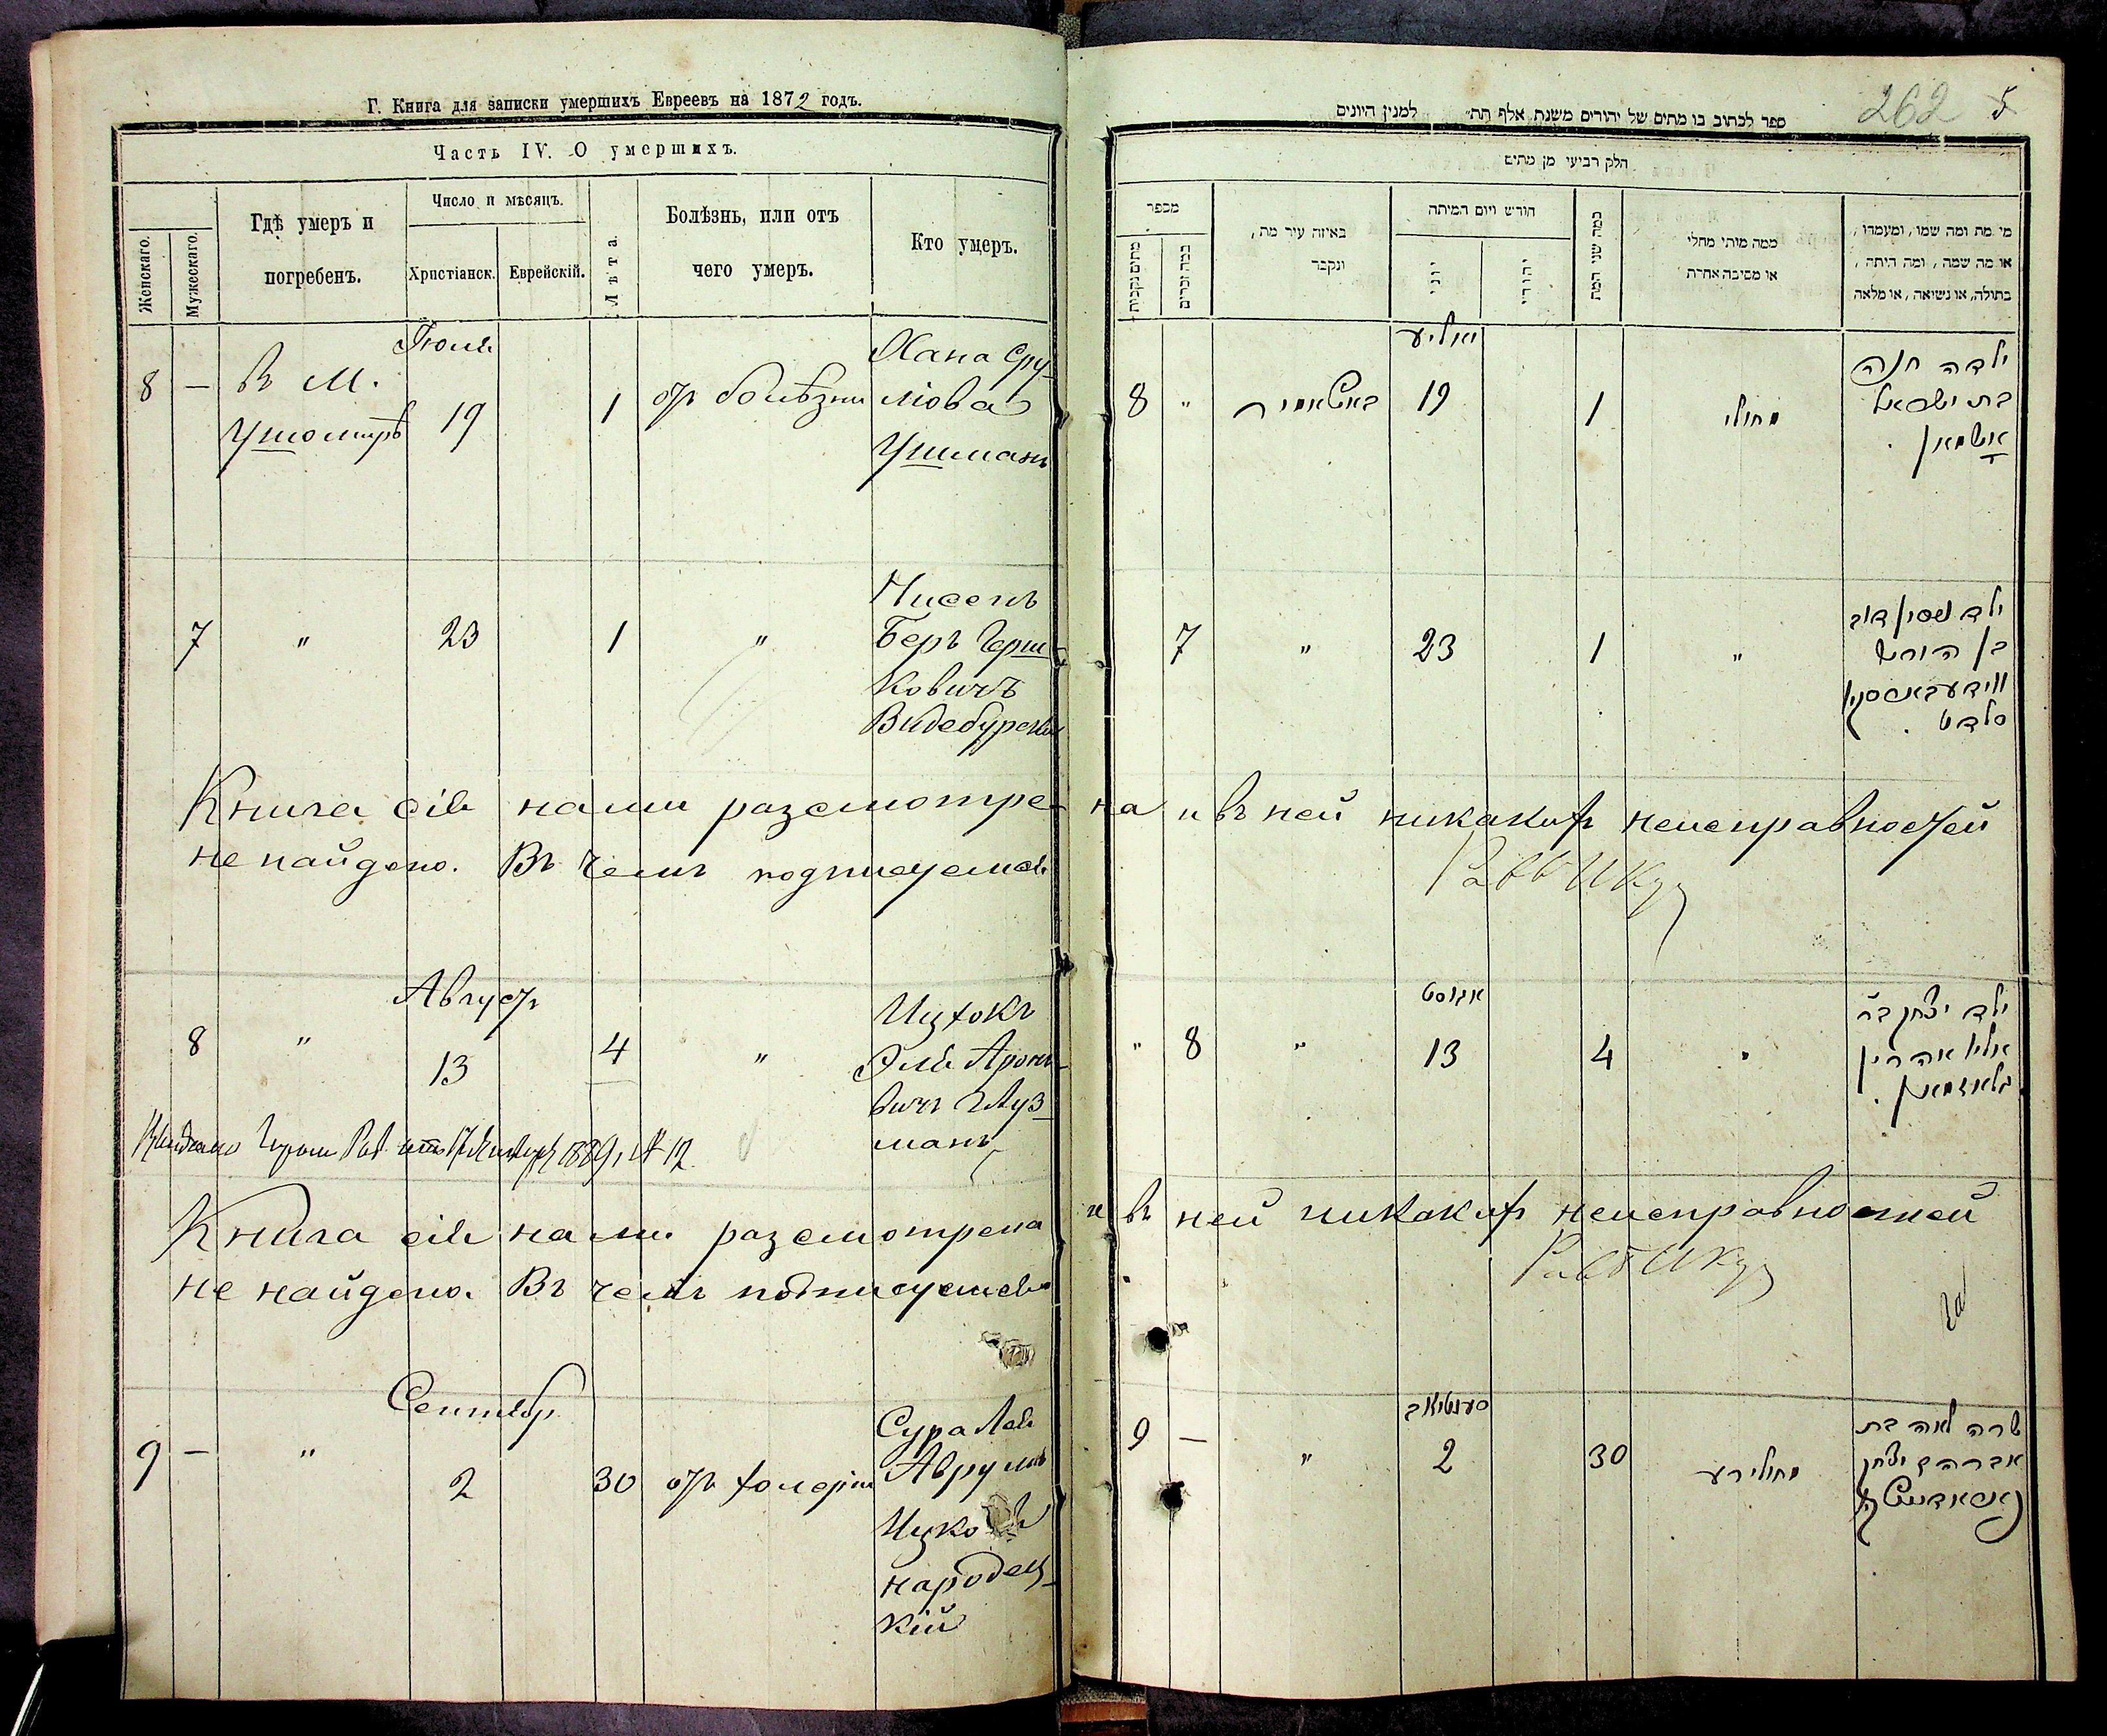 Г. Книга для записки умершихъ Евреевъ на 1872 годъ.
Часть IV. О умершихъ.
Женскаго.
Мужескаго.
Гдѣ умеръ и
погребенъ.
Число и мѣсяцъ.
Христіанск.
Еврейскій.
Лѣта.
Болѣзнь, или отъ
чего умеръ.
Кто умеръ.
Іюля
8 — въ М. 19 1 отъ болѣзни Хана Сру-
Ушомирѣ люва
Ушманъ
Нисенъ
7 " 23 1 " Беръ Герш-
ковичъ
Книга сія нами разсмотре-
не найдено. Въ чемъ подписуемся
Августъ
8 " 13 4 " Ицхокъ
Эля Ароно-
вичъ Глуз-
манъ
1889, № 12
Книга сія нами разсмотрена
не найдено. Въ чемъ подписуемся
Сентябр
9 — " 2 30 отъ холеріи Сура Лея
Аврумъ
Ицко
народец-
кій
262 5
ספר לכתוב בו מתים של יהודים משנת אלף תת" למנין היונים
חלק רביעי מן מתים
מספר
מתים נקבות
כמה זכרים
באיזה עיר מת,
ונקבר
חודש ויום המיתה
יוני
יהודי
כמה שני המת
ממה מותו מחלי
או מסיבה אחרת
מי מת ומה שמו, ומעמדו,
או מה שמה, ומה היתה,
בתולה, או נשואה, או מלאה
יוליע
8 " 19 1 מחולי ילדה חנה
בת ישראל
אושמאן
7 " 23 1 " ילד ניסין דוב
בן הירש
סלדט
на и въ ней никакихъ неисправностей
אגוסט
" 8 " 13 4 " ילד יצחק בר
אליו אהרין
גלוזמאן
и въ ней никакихъ неисправностей
סענטיאב
9 — " 2 30 מחולירע שרה לאה בת
אברהם יצחק